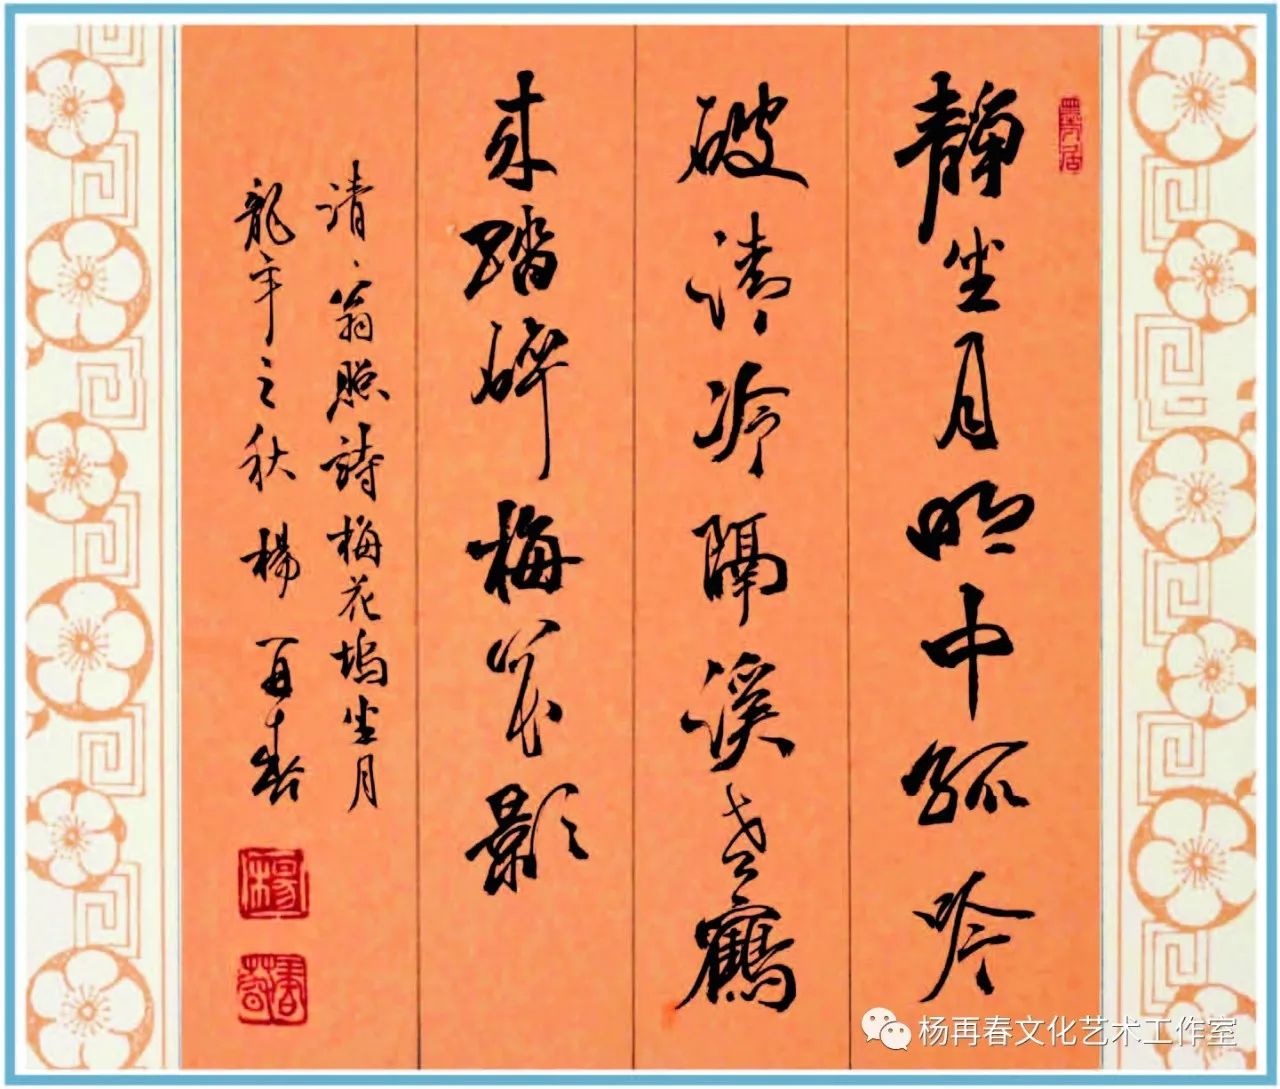 靜坐月明中孤吟
破清冷隔溪老鶴
来踏碎梅花影
清、翁照詩梅花塢坐月
龍年之秋 楊再春
杨再春文化艺术工作室